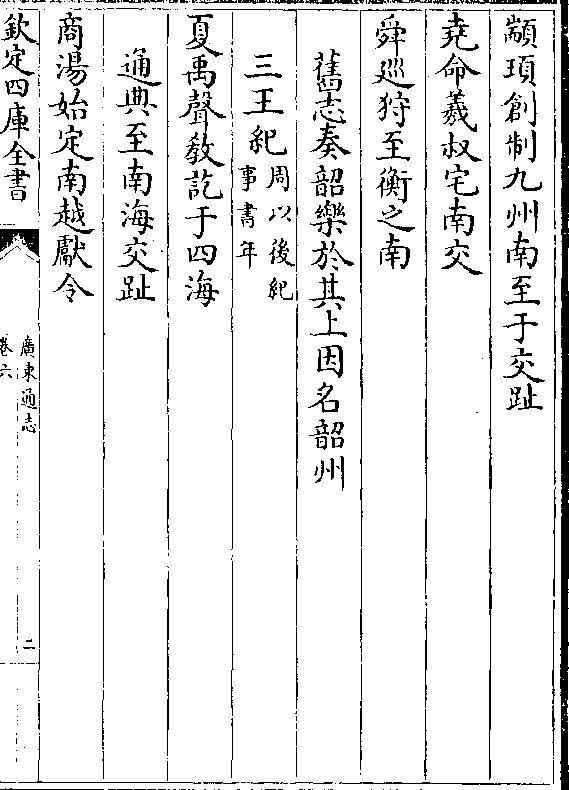 顓頊創制九州南至于交趾
堯命羲叔宅南交
舜廵狩至衡之南
舊志奏韶樂於其上因名韶州
三王紀周以後紀
事書年
夏禹聲教訖于四海
通典至南海交趾
商湯始定南越獻令
欽定四庫全書
廣東通志
卷六
二